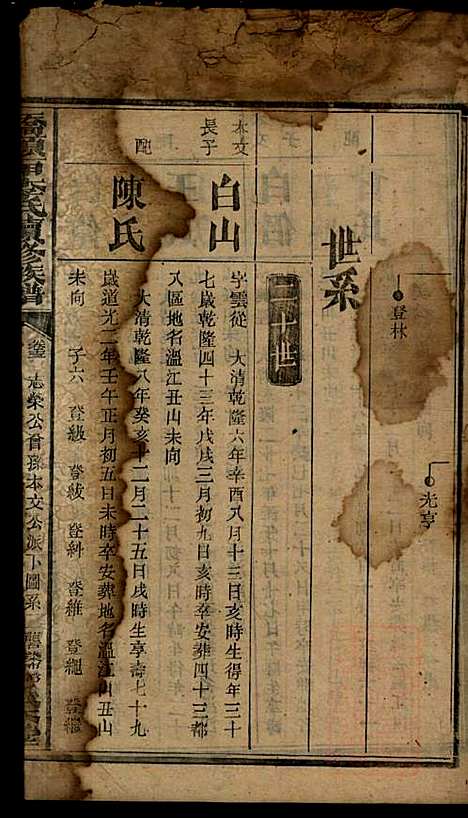 登林
光亨
世系
二十世
本文
長子
白山
字雲從　大清乾隆六年辛酉八月十三日亥時生得年三十
七歲乾隆四十三年戊戌三月初九日亥時卒安葬四十三都
八區地名溫江丑山未向
配
陳氏
大清乾隆八年癸亥十二月二十五日戌時生享壽七十九
歲道光二年壬午正月初五日未時卒安葬地名溫江山丑山
未向　子六　登級　登紱　登科　登維　登繩　登繼
氏續修族譜
卷三　志榮公曾孫本文公派下圖系